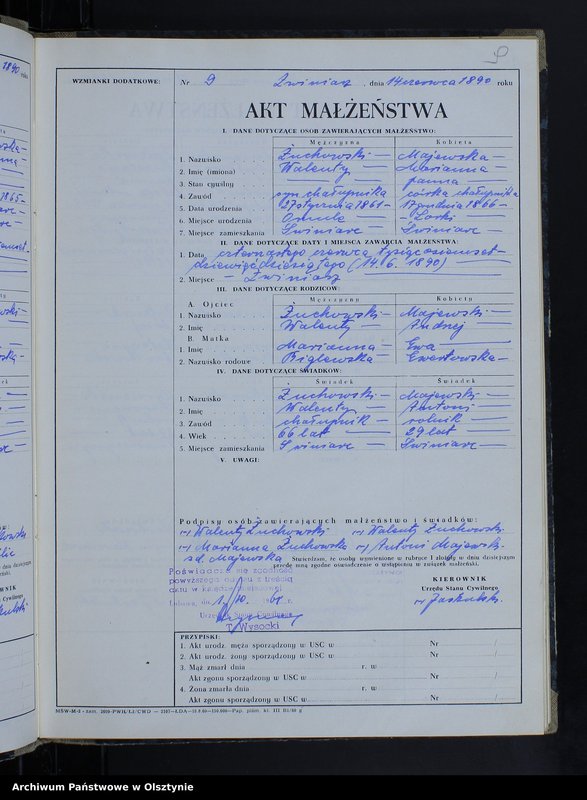 WZMIANKI DODATKOWE:
Nr 9 Zwiniarz, dnia 14 czerwca 1890 roku
AKT MAŁŻEŃSTWA
I. DANE DOTYCZĄCE OSÓB ZAWIERAJĄCYCH MAŁŻEŃSTWO:
Mężczyzna Kobieta
1. Nazwisko Żuchowski Majewska
2. Imię (imiona) Walenty Marianna
3. Stan cywilny panna
4. Zawód syn chałupnika córka chałupnika
5. Data urodzenia 27 stycznia 1861 17 grudnia 1866
6. Miejsce urodzenia Omule Lorki
7. Miejsce zamieszkania Swiniarc Swiniarc
II. DANE DOTYCZĄCE DATY I MIEJSCA ZAWARCIA MAŁŻEŃSTWA:
1. Data czternastego czerwca tysiąc osiemset
dziewięćdziesiątego (14.6. 1890)
2. Miejsce Zwiniarz
III. DANE DOTYCZĄCE RODZICÓW:
Mężczyzny Kobiety
A. Ojciec
1. Nazwisko Żuchowski Majewski
2. Imię Walenty Andrzej
B. Matka
1. Imię Marianna Ewa
2. Nazwisko rodowe Ewertowska
IV. DANE DOTYCZĄCE ŚWIADKÓW:
Świadek Świadek
1. Nazwisko Żuchowski Majewski
2. Imię Walenty Antoni
3. Zawód chałupnik rolnik
4. Wiek 66 lat 29 lat
5. Miejsce zamieszkania Swiniarc Swiniarc
V. UWAGI:
Podpisy osób zawierających małżeństwo i świadków:
Walenty Żuchowski Walenty Żuchowski
Marianna Żuchowska Antoni Majewski
z d. Majewska Stwierdzam, że osoby wymienione w rubryce I złożyły w dniu dzisiejszym
przede mną zgodne oświadczenie o wstąpieniu w związek małżeński.
Poświadcza się zgodność
powyższego odpisu z treścią
KIEROWNIK
Urzędu Stanu Cywilnego
T. Wysocki
PRZYPISKI:
1. Akt urodz. męża sporządzony w USC w Nr
2. Akt urodz. żony sporządzony w USC w Nr
3. Mąż zmarł dnia r. w
Akt zgonu sporządzony w USC w Nr
4. Żona zmarła dnia r. w
Akt zgonu sporządzony w USC w Nr
Archiwum Państwowe w Olsztynie